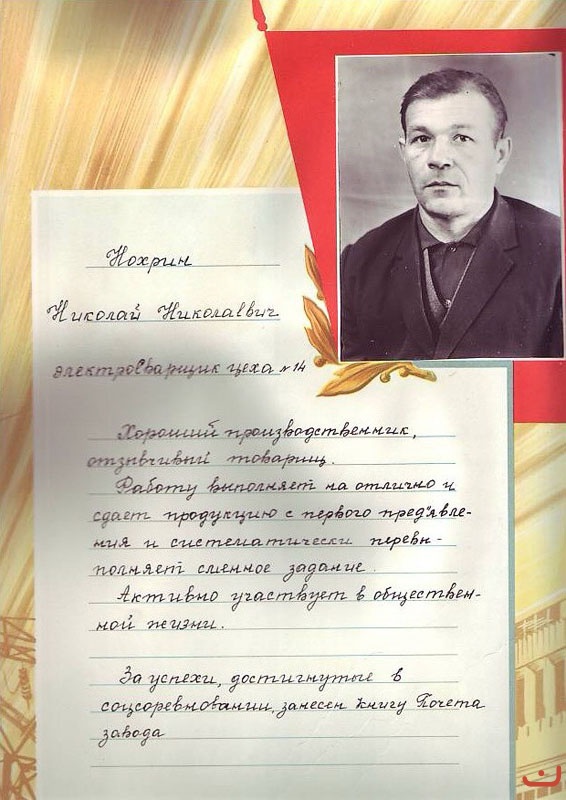 Нохрин
Николай Николаевич
электросварщик цеха №14
Хороший производственник,
отзывчивый товарищ.
Работу выполняет на отлично и
сдает продукцию с первого предъявле-
ния и систематически перевы-
полняет сменное задание.
Активно участвует в обществен-
ной жизни.
За успехи, достигнутые в
соцсоревновании, занесен книгу Почета
завода